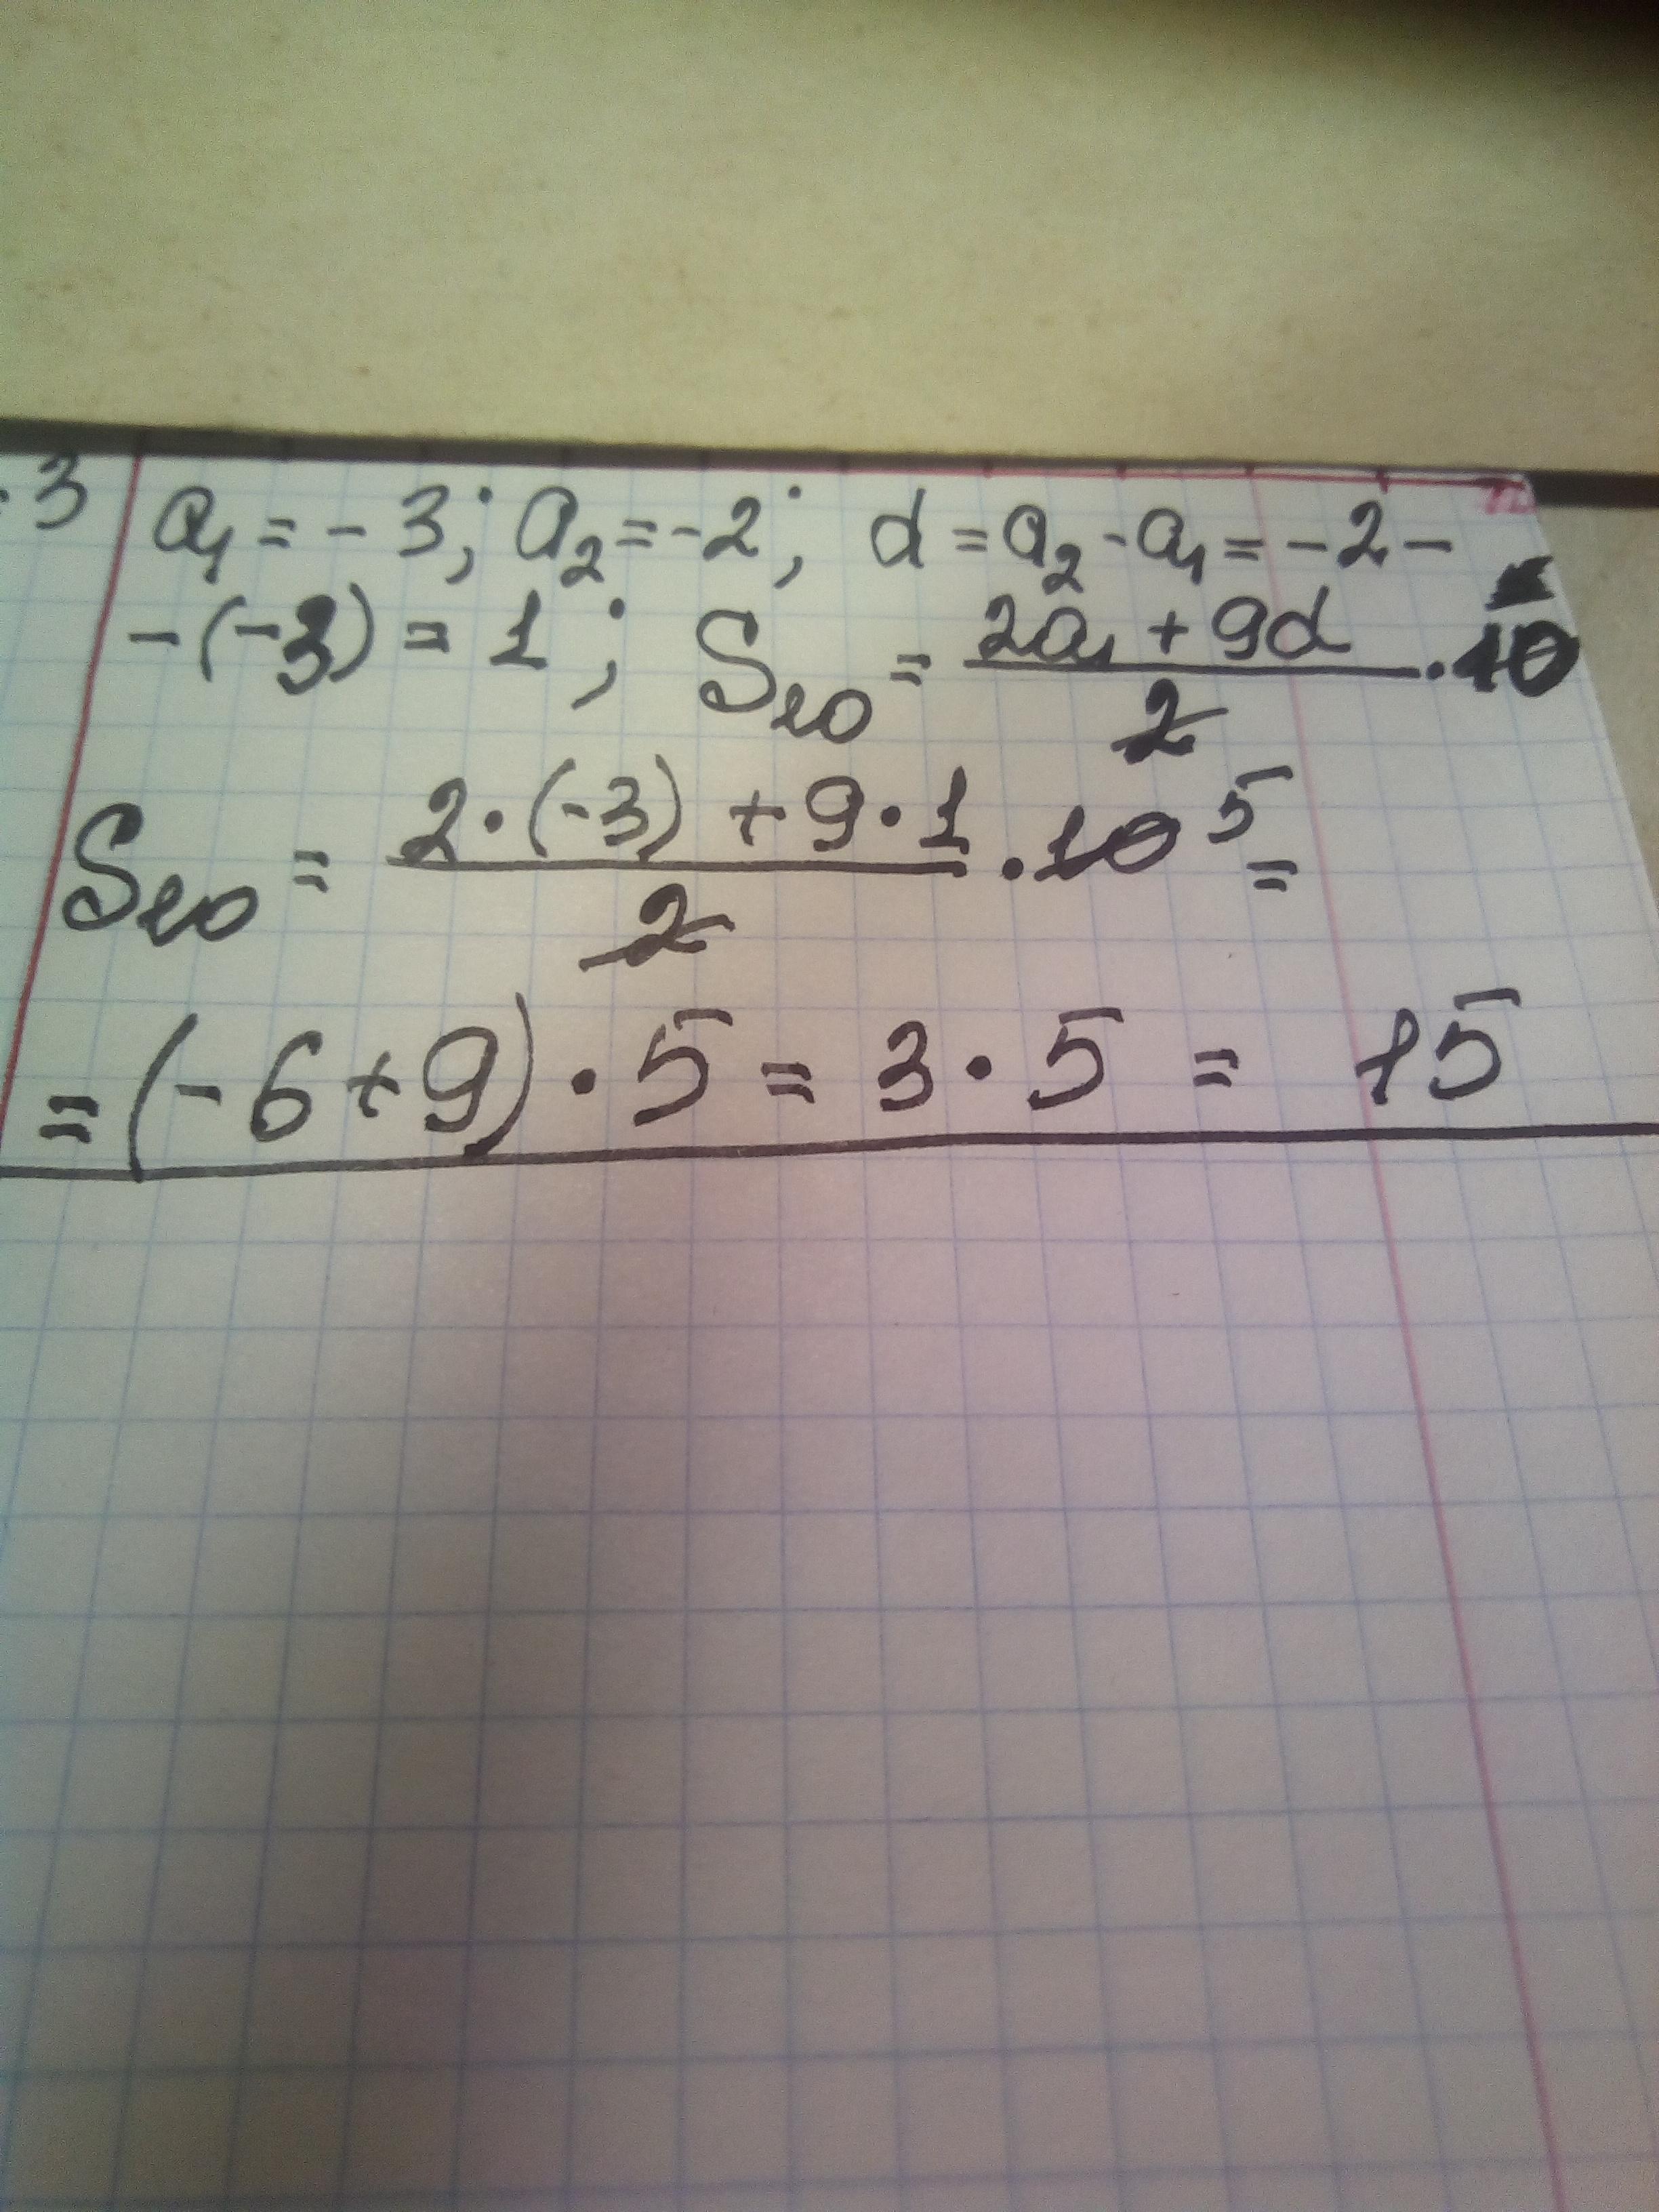 .3 a₁ = -3; a₂ = -2; d = a₂ - a₁ = -2 -
-(-3) = 1; S₁₀ = (2a₁ + 9d)/2 · 10
S₁₀ = (2·(-3) + 9·1)/2 · 10 5 =
= (-6+9) · 5 = 3 · 5 = 15